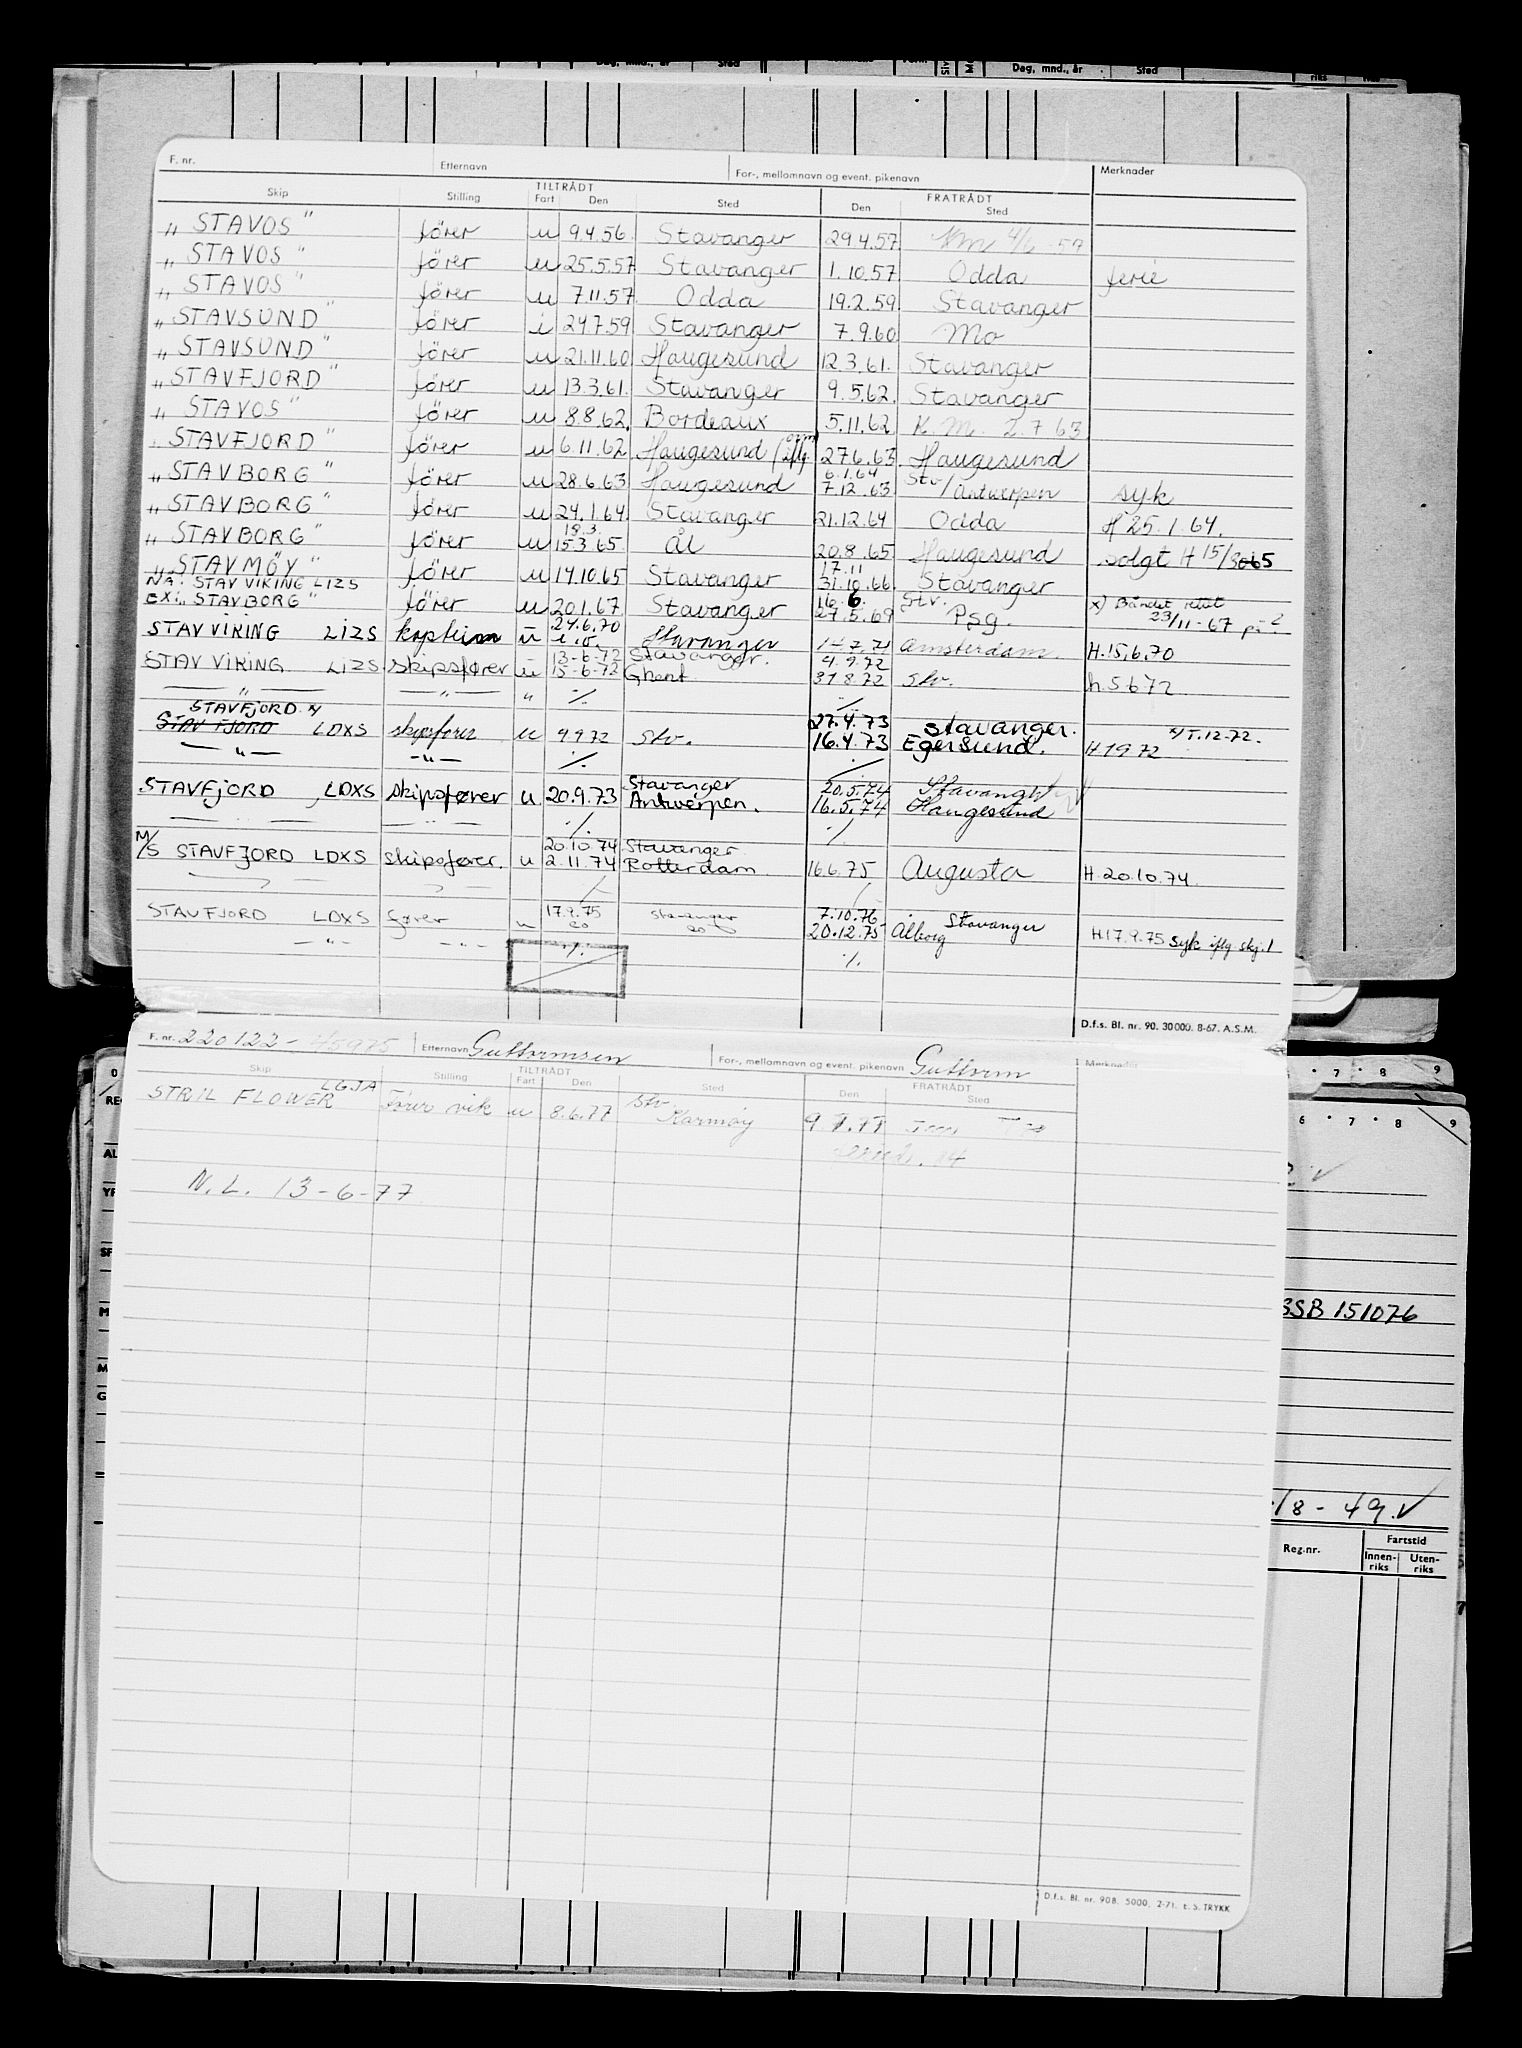 Dag, mnd., år Sted Dag, mnd., år Sted riks
F. nr. Etternavn For-, mellomnavn og event. pikenavn Merknader
TILTRÅDT FRATRÅDT
Skip Stilling Fart Den Sted Den Sted
„ STAVOS" förer u 9.4.56. Stavanger 29.4.57. 4/6-57
„ STAVOS" förer u 25.5.57 Stavanger 1.10.57 Odda ferie
„ STAVOS" förer u 7.11.57 Odda 19.2.59 Stavanger
„ STAVSUND" förer i 24.7.59 Stavanger 7.9.60 Mo
„ STAVSUND" förer u 21.11.60 Haugesund 12.3.61. Stavanger
„ STAVFJORD" förer u 13.3.61. Stavanger 9.5.62. Stavanger
„ STAVOS" förer u 8.8.62. Bordeaux 5.11.62 K.M. 2.7 63
„ STAVFJORD" förer u 6.11.62 Haugesund 27.6.63 Haugesund
6.1.64 Stv
„ STAVBORG" förer u 28.6.63 Haugesund 7.12.63 /Antwerpen syk
„ STAVBORG" förer u 24.1.64. Stavanger 21.12.64 Odda H 25.1.64.
18.3.
„ STAVBORG" förer u 15.3.65. Ål 20.8.65 Haugesund solgt H 15/3-65
17.11
„ STAVMÖY" förer u 14.10.65 Stavanger 31.10.66 Stavanger
Nå: STAV VIKING LIZS 16.6. Stv. x) Båndet
ex: „ STAVBORG" förer u 20.1.67. Stavanger 27.5.69 Psg. 23/11-67 på ?
24.6.70
STAV VIKING LIZS kaptein u Stavanger 14.7.71 Amsterdam. H.15.6.70
13-6-72 Stavanger. 4.9.72
STAV VIKING LIZS skipsfører u 15-6-72 Ghent 31 8 72 Stv. h.5672
— " — — " — " ./. ./.
STAVFJORD x/ 27.4.73 Stavanger.
STAV FJORD LDXS skipsfører u 9972 Stv. 16.4.73 Egersund. H 1972 x/T.12-72.
— " — — " — ./. ./.
Stavanger 20.5.74 Stavanger
STAVFJORD LDXS skipsfører u 20.9.73 Antwerpen. 16.5.74 Haugesund
./. ./.
20.10.74 Stavanger.
M/S STAVFJORD LDXS skipsfører. u 2.11.74 Rotterdam. 16.6.75 Augusta H.20.10.74.
17.9.75 Stavanger 7.10.76 Stavanger
STAVFJORD LDXS fører u do do 20.12.75 Ålborg H.17.9.75 syk iflg skj.1
— " — — " — ./. ./.
D.f.s. Bl. nr. 90. 30000. 8-67. A.S.M.
F. nr. 220122-45975 Etternavn Guttormsen For-, mellomnavn og event. pikenavn Guttorm Merknader
TILTRÅDT FRATRÅDT
Skip Stilling Fart Den Sted Den Sted
LGJA Stv.
STRIL FLOWER Fører vik u 8.6.77 Karmøy 9 7.77
N.L. 13-6-77
SSB 151076
/8 - 49.
Reg.nr. Fartstid
Innen-riks Uten-riks
D.f.s. Bl. nr. 908. 5000. 2-71. E. S. TRYKK